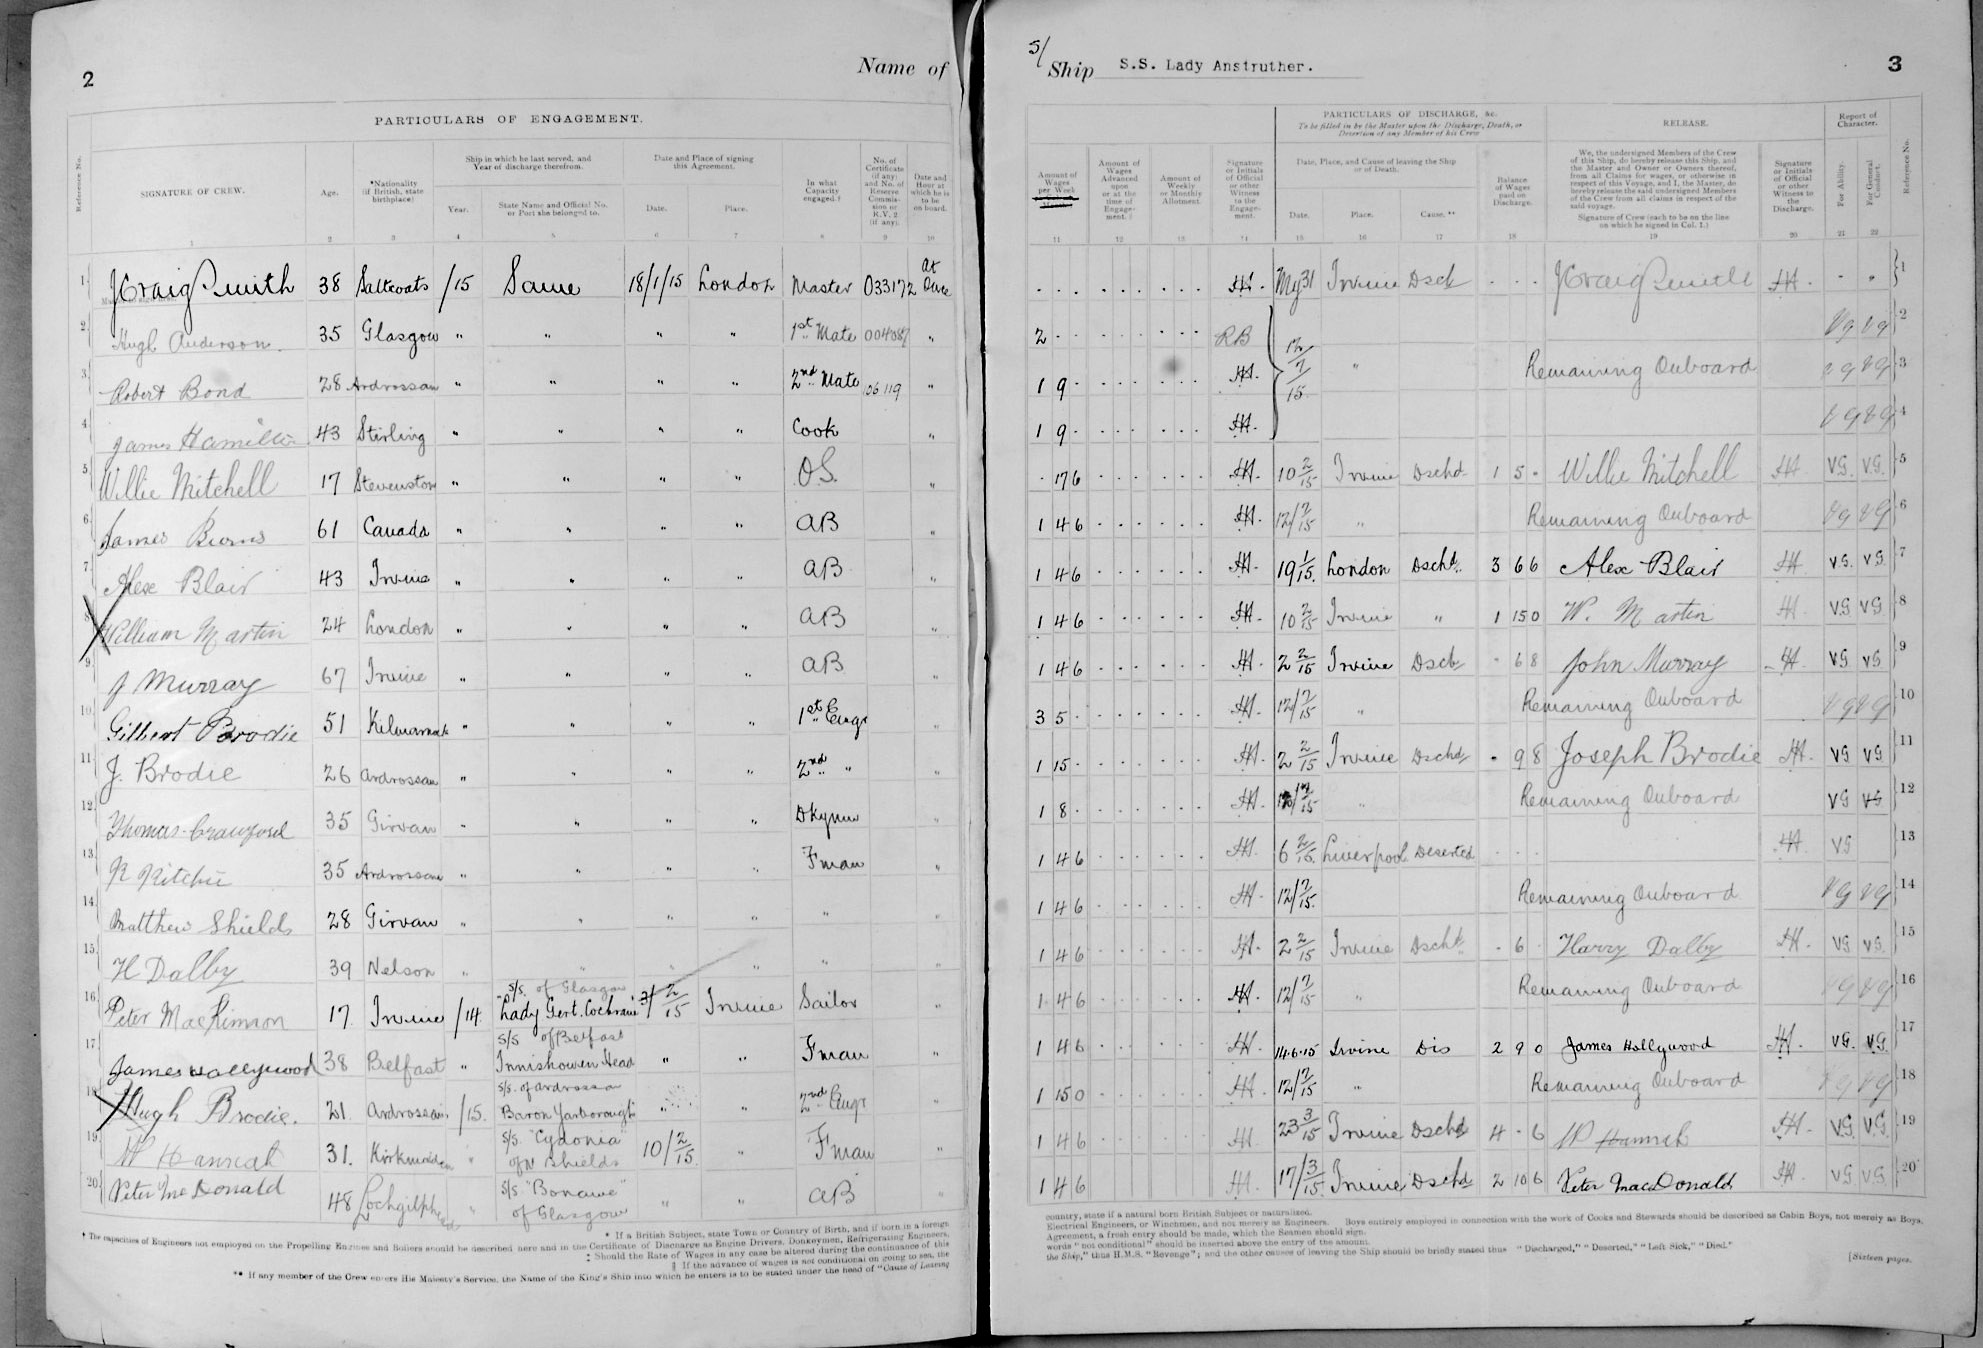 2
Name of
PARTICULARS OF ENGAGEMENT.
Reference No.
SIGNATURE OF CREW.
Age.
*Nationality (if British, state birthplace)
Ship in which he last served, and Year of discharge therefrom.
Year.
State Name and Official No. or Port she belonged to.
Date and Place of signing this Agreement.
Date.
Place.
In what Capacity engaged.†
No. of Certificate (if any) and No. of Reserve Commission or R.V. 2 (if any).
Date and Hour at which he is to be on board.
1 2 3 4 5 6 7 8 9 10
1 J Craig Smith 38 Saltcoats /15 Same 18/1/15 London Master 033172 At Once
2 Hugh Anderson. 35 Glasgow " " " " 1st Mate "
3 Robert Bond 28 Ardrossan " " " " 2nd Mate 06119 "
4 James Hamilton 43 Stirling " " " " Cook "
5 Willie Mitchell 17 Stevenston " " " " O.S. "
6 James Burns 61 Canada " " " " AB "
7 Alex Blair 43 Irvine " " " " AB "
8 William Martin 24 London " " " " AB "
9 J Murray 67 Irvine " " " " AB "
10 Gilbert Brodie 51 Kilmarnock " " " " 1st Engr "
11 J. Brodie 26 Ardrossan " " " " 2nd " "
12 Thomas Crawford 35 Girvan " " " " Dkyman "
13 R Ritchie 35 Ardrossan " " " " Fman "
14 Matthew Shields 28 Girvan " " " " " "
15 H Dalby 39 Nelson " " " " " "
16 Peter MacKinnon 17 Irvine /14 S/S. of Glasgow "Lady Gert. Cochrane" 2/15 Irvine Sailor "
17 James Hollywood 38 Belfast " S/S of Belfast Innishowen Head " " Fman "
18 Hugh Brodie. 21 Ardrossan /15. S/S. of Ardrossan Baron Yarborough " " 2nd Engr "
19 W Hannah 31. Kirkmaiden " S/S. "Cydonia" of N Shields 10/2/15 " Fman "
20 Peter McDonald 48 Lochgilphead " S/S. "Bonawe" of Glasgow " " AB "
* If a British Subject, state Town or Country of Birth, and if born in a foreign
† The capacities of Engineers not employed on the Propelling Engines and Boilers should be described here and in the Certificate of Discharge as Engine Drivers, Donkeymen, Refrigerating Engineers,
‡ Should the Rate of Wages in any case be altered during the continuance of this
§ If the advance of wages is not conditional on going to sea, the
** If any member of the Crew enters His Majesty's Service, the Name of the King's Ship into which he enters is to be stated under the head of "Cause of Leaving
5/
Ship S.S. Lady Anstruther.
3
PARTICULARS OF DISCHARGE, &c.
To be filled in by the Master upon the Discharge, Death, or Desertion of any Member of his Crew
RELEASE.
Report of Character.
Amount of Wages per Week
Amount of Wages Advanced upon or at the time of Engagement.
Amount of Weekly or Monthly Allotment.
Signature or Initials of Official or other Witness to the Engagement.
Date, Place, and Cause of leaving the Ship or of Death.
Date.
Place.
Cause.**
Balance of Wages paid on Discharge.
We, the undersigned Members of the Crew of this Ship, do hereby release this Ship, and the Master and Owner or Owners thereof, from all Claims for wages, or otherwise in respect of this Voyage, and I, the Master, do hereby release the said undersigned Members of the Crew from all claims in respect of the said voyage.
Signature of Crew (each to be on the line on which he signed in Col. 1.)
Signature or Initials of Official or other Witness to the Discharge.
For Ability.
For General Conduct.
Reference No.
11 12 13 14 15 16 17 18 19 20 21 22
HA. My 31 Irvine Dsch J Craig Smith HA. 1
2 - - RB 12/7/15 " Vg Vg 2
1 9 - HA. Remaining Onboard Vg Vg 3
1 9 - HA. Vg Vg 4
- 17 6 HA. 10 2/15 Irvine Dschd 1 5 - Willie Mitchell HA. VG. VG. 5
1 4 6 HA. 12/7/15 " Remaining Onboard Vg Vg 6
1 4 6 HA. 19 1/15. London Dschd. 3 6 6 Alex Blair HA VG. VG. 7
1 4 6 HA. 10 2/15 Irvine " 1 15 0 W. Martin HA VG VG 8
1 4 6 HA. 2 2/15 Irvine Dsch - 6 8 John Murray HA VG VG 9
3 5 - HA. 12/7/15 " Remaining Onboard Vg Vg 10
1 15 - HA. 2 2/15 Irvine Dschd - 9 8 Joseph Brodie HA. VG VG 11
1 8 - HA. 12/7/15 " Remaining Onboard VG VG 12
1 4 6 HA. 6 2/15. Liverpool Deserted HA VG 13
1 4 6 HA. 12/7/15. Remaining Onboard Vg Vg 14
1 4 6 HA. 2 2/15 Irvine Dschd. - 6 - Harry Dalby HA. VG VG. 15
1 4 6 HA. 12/7/15 " Remaining Onboard Vg Vg 16
1 4 6 HA. 14.6.15 Irvine Dis 2 9 0 James Hollywood HA. VG. VG. 17
1 15 0 HA. 12/7/15 " Remaining Onboard Vg Vg 18
1 4 6 HA 23 3/15 Irvine Dschd 4 - 6 W Hannah HA. VG. VG. 19
1 4 6 HA. 17/3/15. Irvine Dschd 2 10 6 Peter MacDonald HA. VG VG. 20
country, state if a natural born British Subject or naturalized.
Electrical Engineers, or Winchmen, and not merely as Engineers. Boys entirely employed in connection with the work of Cooks and Stewards should be described as Cabin Boys, not merely as Boys.
Agreement, a fresh entry should be made, which the Seamen should sign.
words "not conditional" should be inserted above the entry of the amount.
the Ship," thus H.M.S. "Revenge"; and the other causes of leaving the Ship should be briefly stated thus "Discharged," "Deserted," "Left Sick," "Died."
[Sixteen pages.